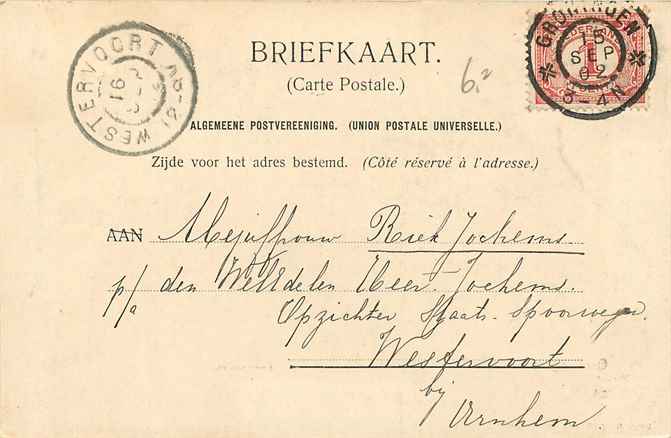 BRIEFKAART.
(Carte Postale.)
ALGEMEENE POSTVEREENIGING. (UNION POSTALE UNIVERSELLE.)
Zijde voor het adres bestemd. (Côté réservé à l'adresse.)
WESTERVOORT
16 SEP
GRONINGEN
15
SEP
02
3-4N
NEDERLAND
1
6.²
AAN Mejuffrouw Riek Jochems.
p/a den WelEdelen Heer Jochems.
Opzichter Staats-Spoorwegen
Westervoort
bij
Arnhem.